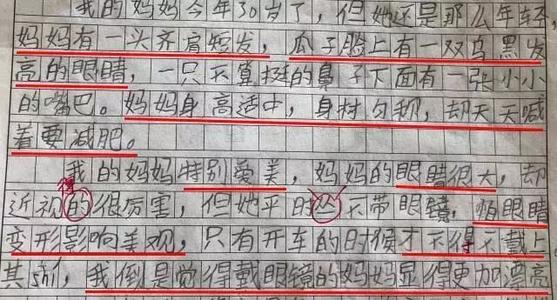 我的妈妈今年30岁了，但她还是那么年轻，
妈妈有一头齐肩短发，瓜子脸上有一双乌黑发
亮的眼睛，一只不算挺的鼻子下面有一张小小
的嘴巴。妈妈身高适中，身材匀称，却天天喊
着要减肥。
我的妈妈特别爱美，妈妈的眼睛很大，却
得
近视的很厉害，但她平时从不带眼镜，怕眼睛
变形影响美观，只有开车的时候才不得不戴上
其实，我倒是觉得戴眼镜的妈妈显得更加漂亮